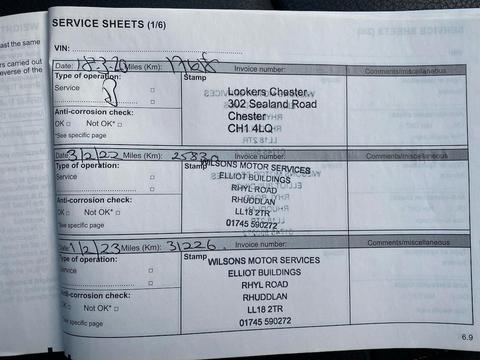 SERVICE SHEETS (1/6)
VIN:
Date: 18.3.20 Miles (Km): Invoice number: Comments/miscellaneous
Type of operation: Stamp
Service
Lookers Chester.
302 Sealand Road
Chester
CH1 4LQ
Anti-corrosion check:
OK Not OK*
*See specific page
Date: 3/2/22 Miles (Km): 25830 Invoice number: Comments/miscellaneous
Type of operation: Stamp
Service
WILSONS MOTOR SERVICES
ELLIOT BUILDINGS
RHYL ROAD
RHUDDLAN
LL18 2TR
01745 590272
Anti-corrosion check:
OK Not OK*
*See specific page
Date: 1/2/23 Miles (Km): 31226. Invoice number: Comments/miscellaneous
Type of operation: Stamp
Service
WILSONS MOTOR SERVICES
ELLIOT BUILDINGS
RHYL ROAD
RHUDDLAN
LL18 2TR
01745 590272
Anti-corrosion check:
OK Not OK*
*See specific page
6.9
ast the same
rs carried out
everse of the